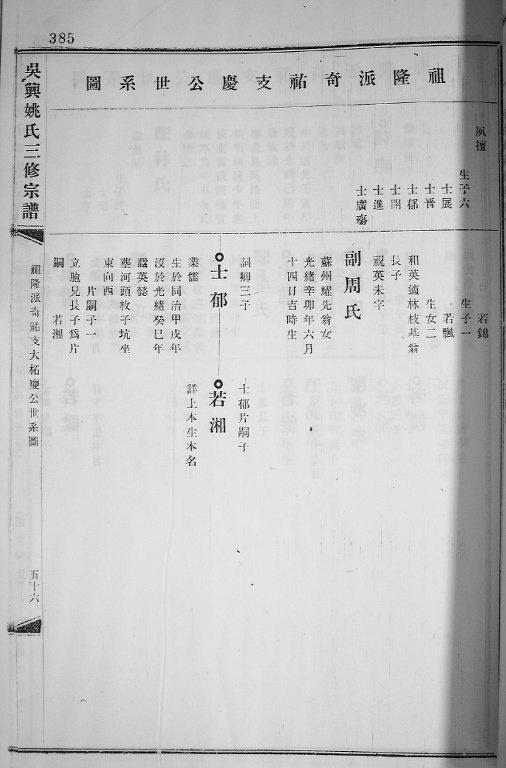 385
祖隆派奇祐支慶公世系圖
夙擅
生子六
士展
士晋
士郁
士開
士進
士廣殤
若錦
生子一
若飄
生女二
和英適林枝基翁
長子
視英未字
副周氏
蘇州耀先翁女
光緒辛卯年六月
十四日吉時生
詞卿三子
士郁
業儒
生於同治甲戌年
沒於光緒癸巳年
諡英懿
塞河頭枚子坑坐
東向西
片嗣子一
立胞兄長子爲片
嗣 若湘
士郁片嗣子
若湘
詳上本生本名
吳興姚氏三修宗譜
祖隆派奇祐支大柘慶公世系圖
五十六